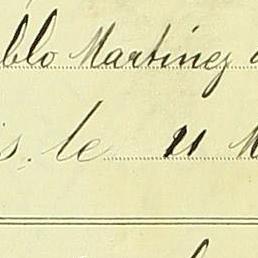 blo Martinez
s. le 21 M